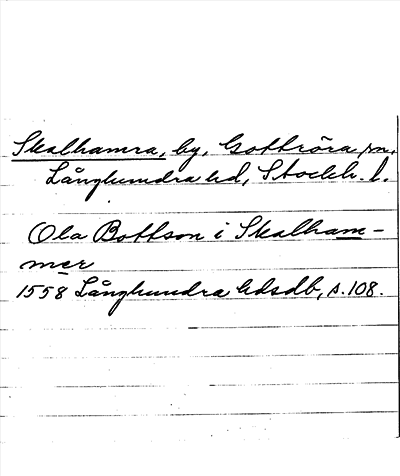 Skalhamra, by, Gottröra sn,
Långhundra hd, Stockh. l.
Ola Bottson i Skalham-
mer
1558 Långhundra hdsdb, s. 108.